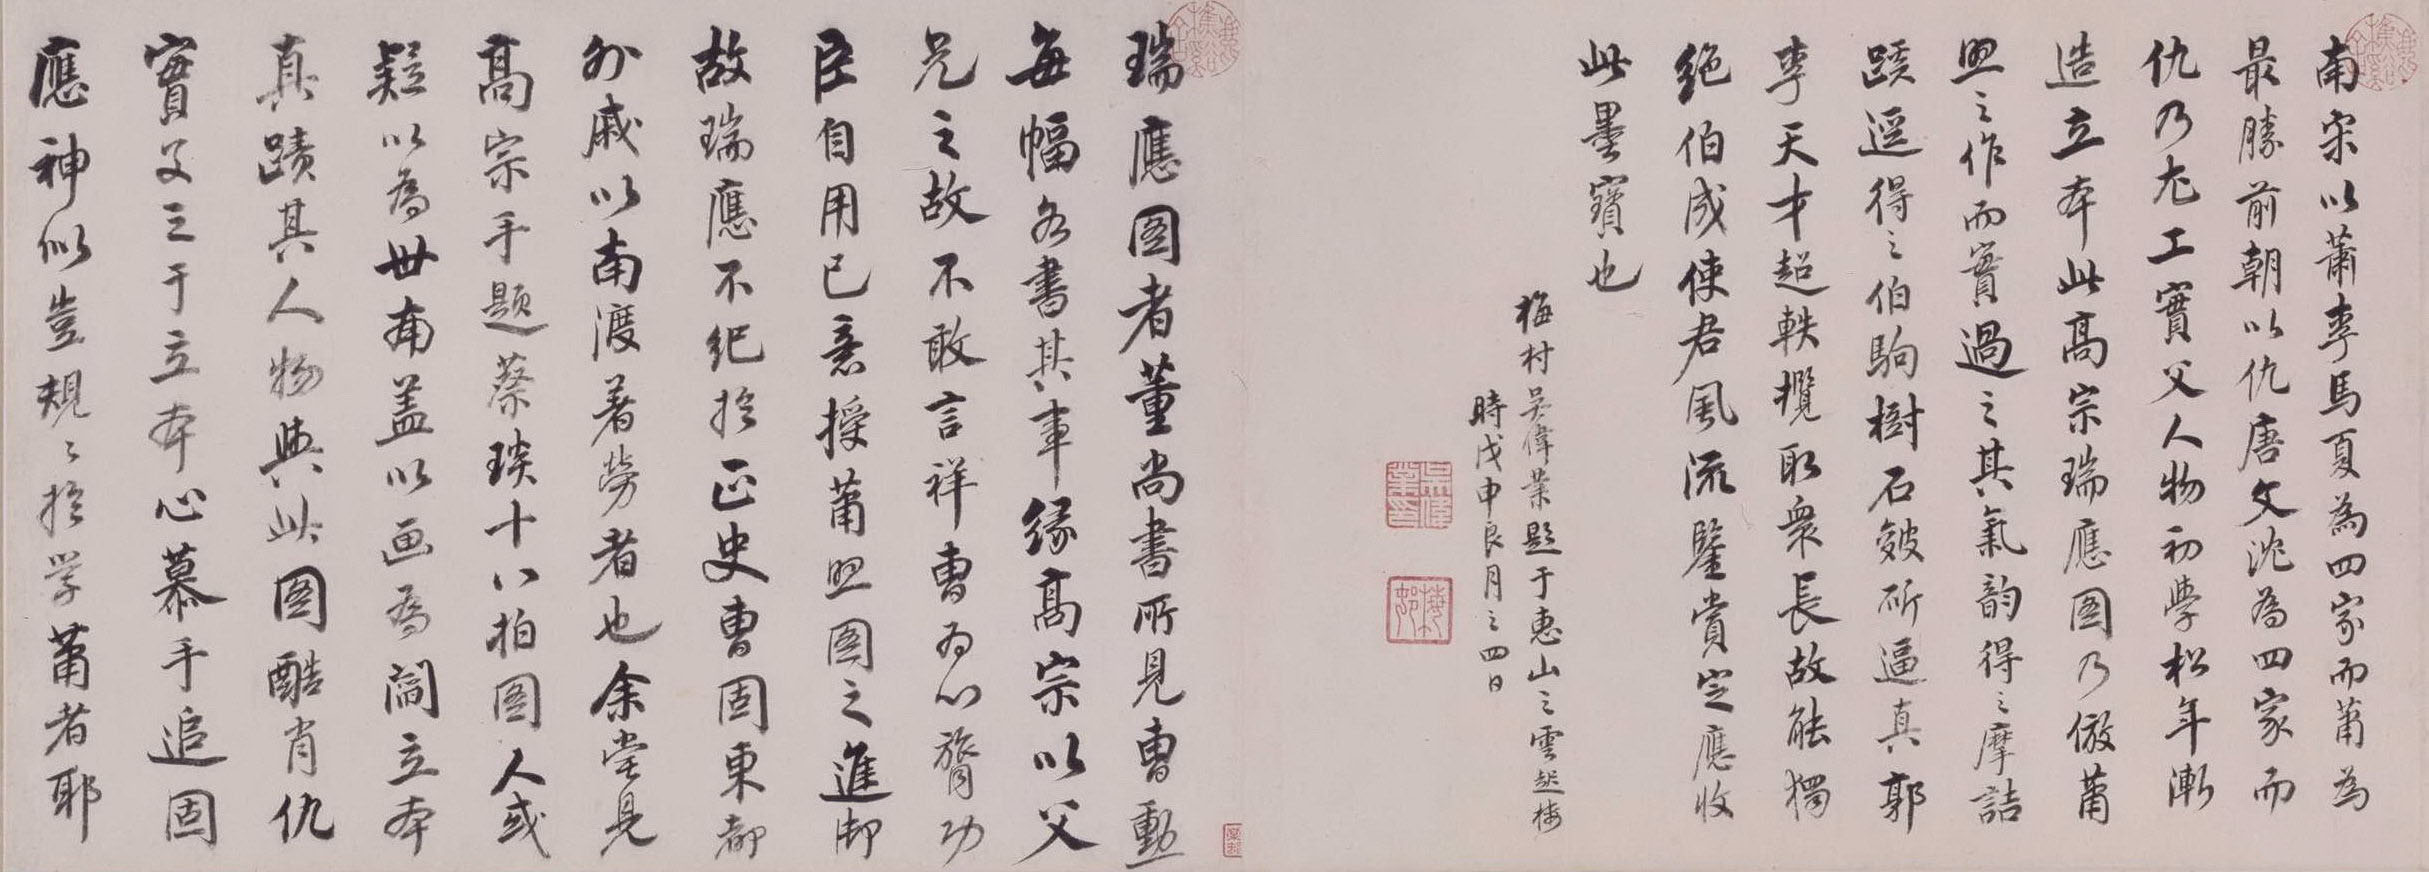 南宋以蕭李馬夏為四家而蕭為
最勝前朝以仇唐文沈為四家而
仇乃尤工實父人物初學松年漸
造立本此高宗瑞應图乃倣蕭
照之作而實過之其氣韵得之摩詰
蹊逕得之伯駒樹石皴斫逼真郭
李天才超軼攬取衆長故能獨
絶伯成使君風流鑒賞定應收
此墨寶也
梅村吳偉業題于惠山之雲起樓
時戊申良月之四日
瑞應图者董尚書所見曹勳
每幅各書其事緣高宗以父
兄之故不敢言祥曹為心膂功
臣自用已意授蕭照图之進御
故瑞應不紀於正史曹固東都
外戚以南渡著勞者也余嘗見
高宗手題蔡琰十八拍图人或
疑以為世南盖以画為閻立本
真蹟其人物與此图酷肖仇
實父之于立本心慕手追固
應神似豈規々於學蕭者耶
吳偉業印
梅村